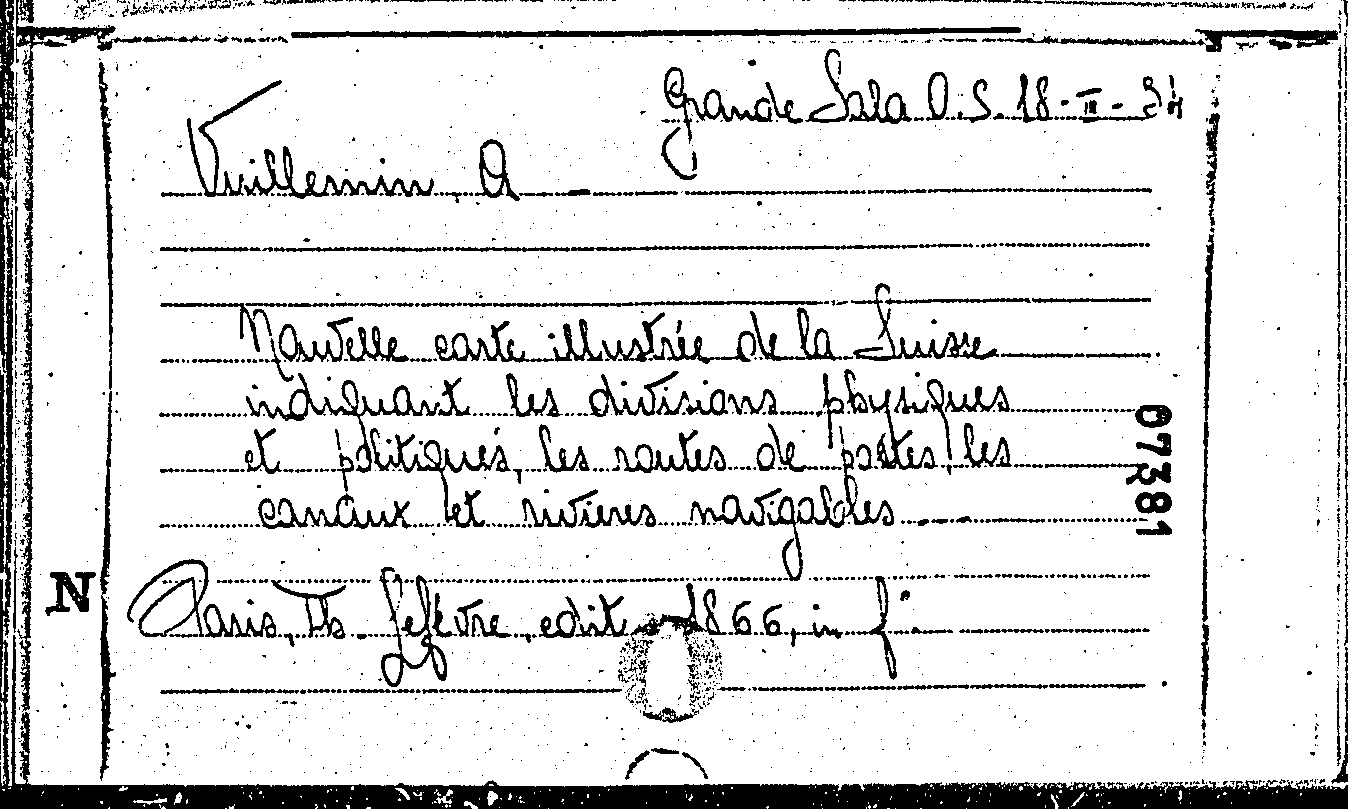 Grande Sala O.S. 18-II-34
Vuillemin, A -
Nouvelle carte illustrée de la Suisse
indiquant les divisions physiques
et politiques, les routes de postes, les
canaux et rivières navigables ---
N
Paris, Th. Lefèvre, edit. 1866, in fº.
07381